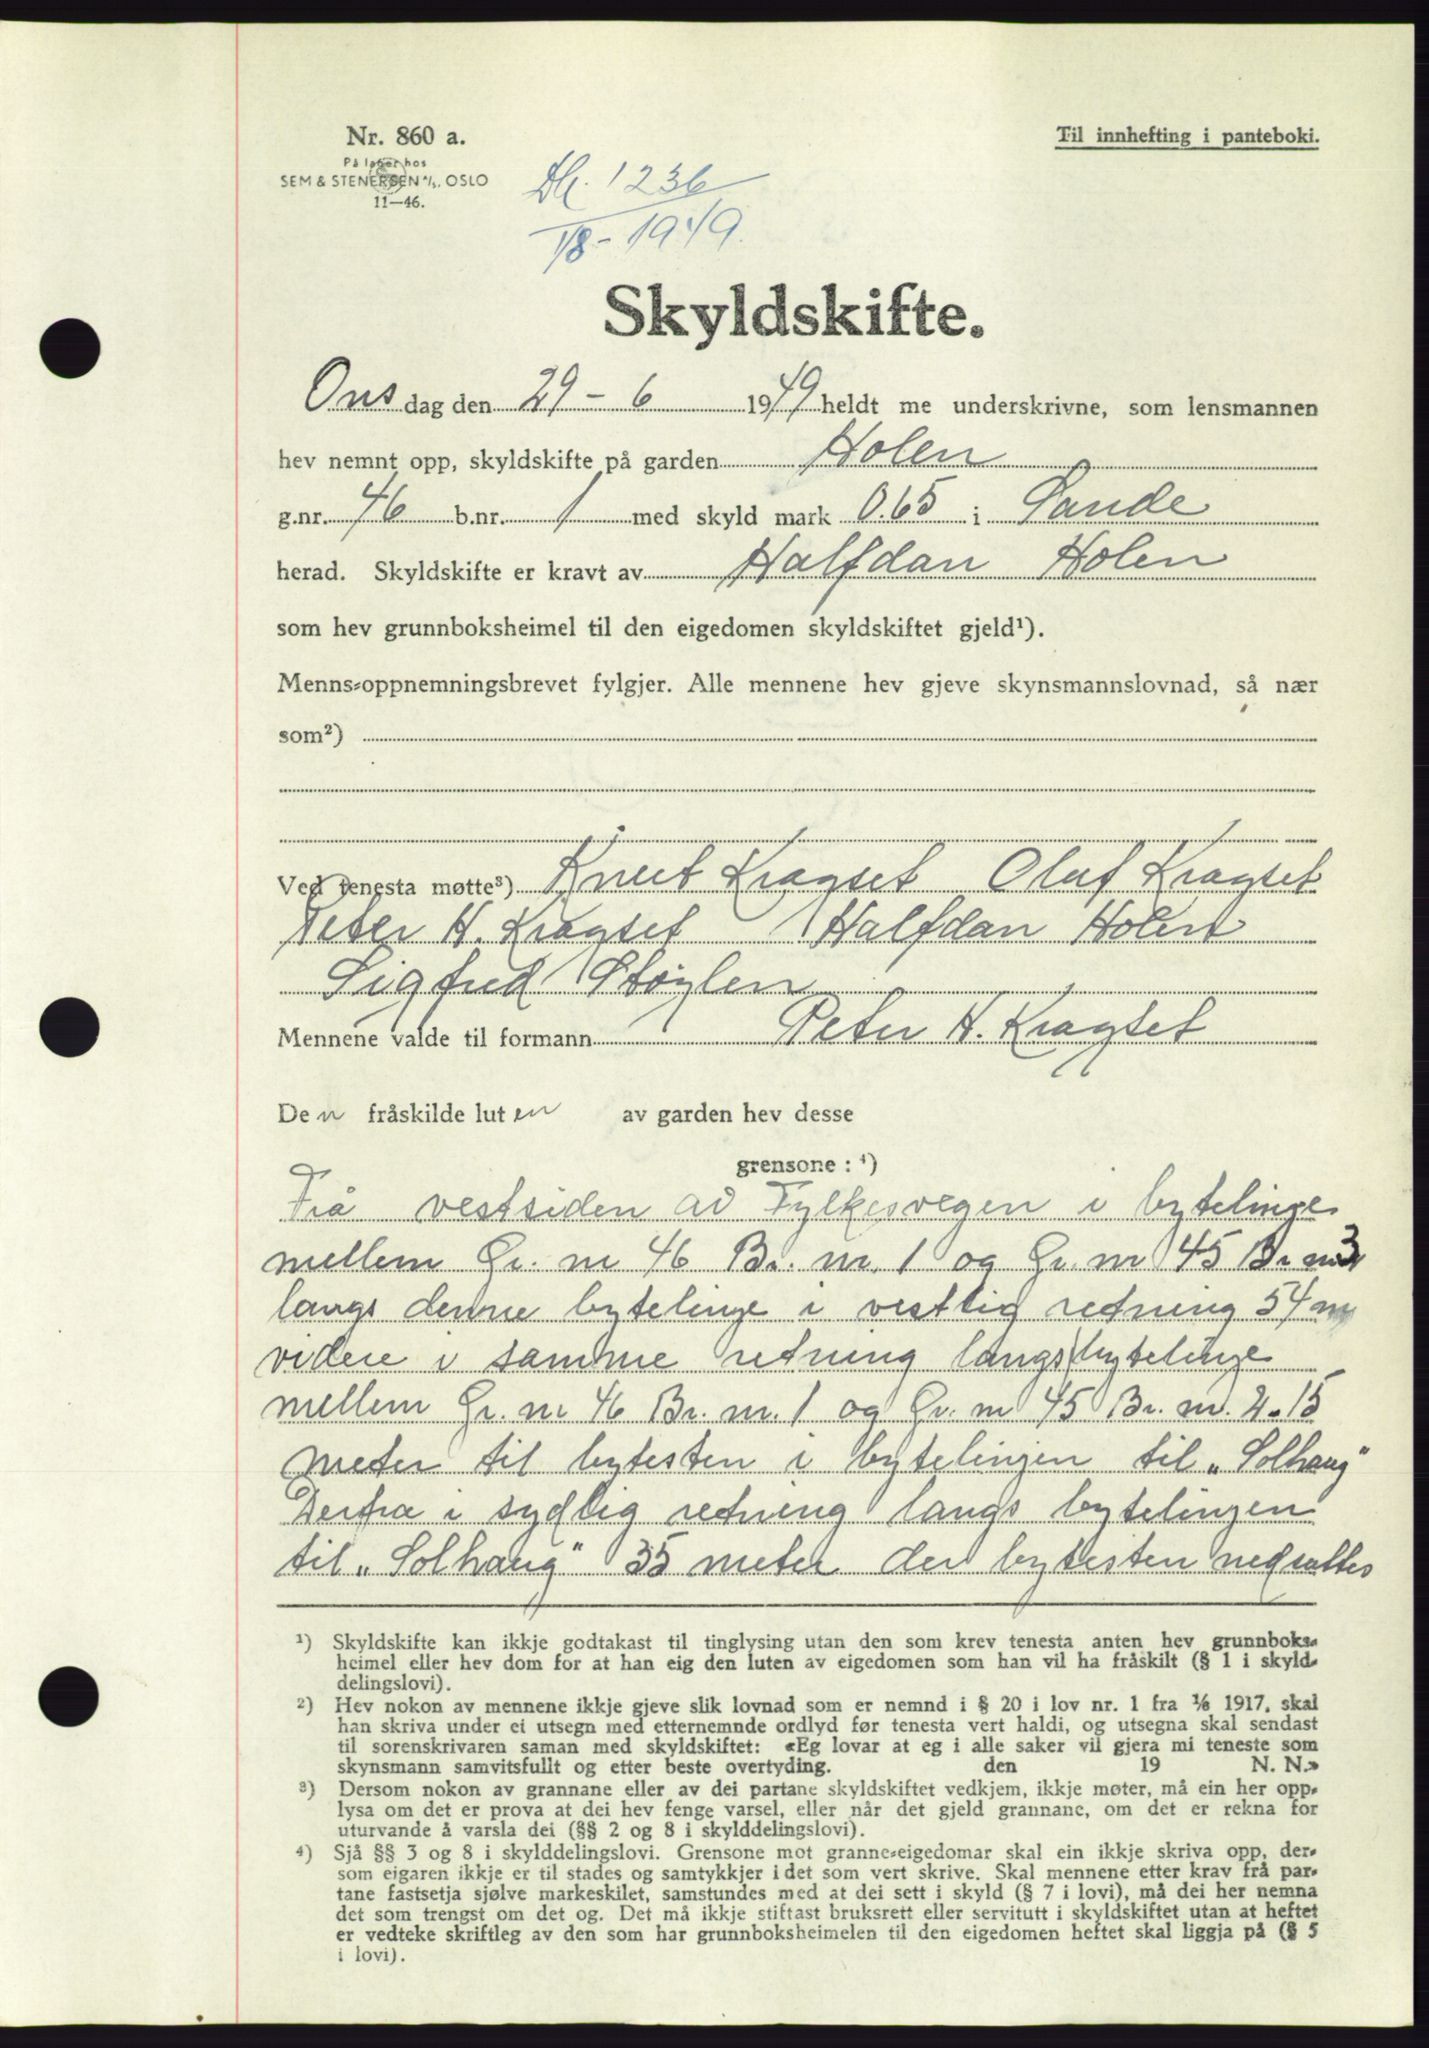 Nr. 860 a.
På lager hos
SEM & STENERSEN A/S, OSLO
11—46.
Til innhefting i panteboki.
Db. 1236
1/8 - 1949.
Skyldskifte.
Onsdag den 29 - 6 1949 heldt me underskrivne, som lensmannen
hev nemnt opp, skyldskifte på garden Holen
g.nr. 46 b.nr. 1 med skyld mark 0.65 i Sande
herad. Skyldskifte er kravt av Halfdan Holen
som hev grunnboksheimel til den eigedomen skyldskiftet gjeld¹).
Menns-oppnemningsbrevet fylgjer. Alle mennene hev gjeve skynsmannslovnad, så nær
som²)
Ved tenesta møtte³) Knut Kragset Oluf Kragset
Peter H. Kragset Halfdan Holen
Sigfred Støylen
Mennene valde til formann Peter H. Kragset
Den fråskilde luten av garden hev desse
grensone : ⁴)
Frå vestsiden av Fylkesvegen i bytelinge
mellem Gr. nr 46 Br. nr. 1 og Gr. nr 45 Br nr 3
langs denne bytelinge i vestlig retning 54 m
videre i samme retning langs bytelinge
mellem Gr. nr 46 Br. nr. 1 og Gr. nr 45 Br. nr. 2. 15
meter til bytesten i bytelingen til „Solhaug"
Derfra i sydlig retning langs bytelingen
til „Solhaug" 35 meter der bytesten nedsattes
¹) Skyldskifte kan ikkje godtakast til tinglysing utan den som krev tenesta anten hev grunnboks-
heimel eller hev dom for at han eig den luten av eigedomen som han vil ha fråskilt (§ 1 i skyld-
delingslovi).
²) Hev nokon av mennene ikkje gjeve slik lovnad som er nemnd i § 20 i lov nr. 1 fra 1/6 1917, skal
han skriva under ei utsegn med etternemnde ordlyd før tenesta vert haldi, og utsegna skal sendast
til sorenskrivaren saman med skyldskiftet: «Eg lovar at eg i alle saker vil gjera mi teneste som
skynsmann samvitsfullt og etter beste overtyding. den 19 N. N.»
³) Dersom nokon av grannane eller av dei partane skyldskiftet vedkjem, ikkje møter, må ein her opp-
lysa om det er prova at dei hev fenge varsel, eller når det gjeld grannane, om det er rekna for
uturvande å varsla dei (§§ 2 og 8 i skylddelingslovi).
⁴) Sjå §§ 3 og 8 i skylddelingslovi. Grensone mot granne-eigedomar skal ein ikkje skriva opp, der-
som eigaren ikkje er til stades og samtykkjer i det som vert skrive. Skal mennene etter krav frå par-
tane fastsetja sjølve markeskilet, samstundes med at dei sett i skyld (§ 7 i lovi), må dei her nemna
det som trengst om det og. Det må ikkje stiftast bruksrett eller servitutt i skyldskiftet utan at heftet
er vedteke skriftleg av den som har grunnboksheimelen til den eigedomen heftet skal liggja på (§ 5
i lovi).